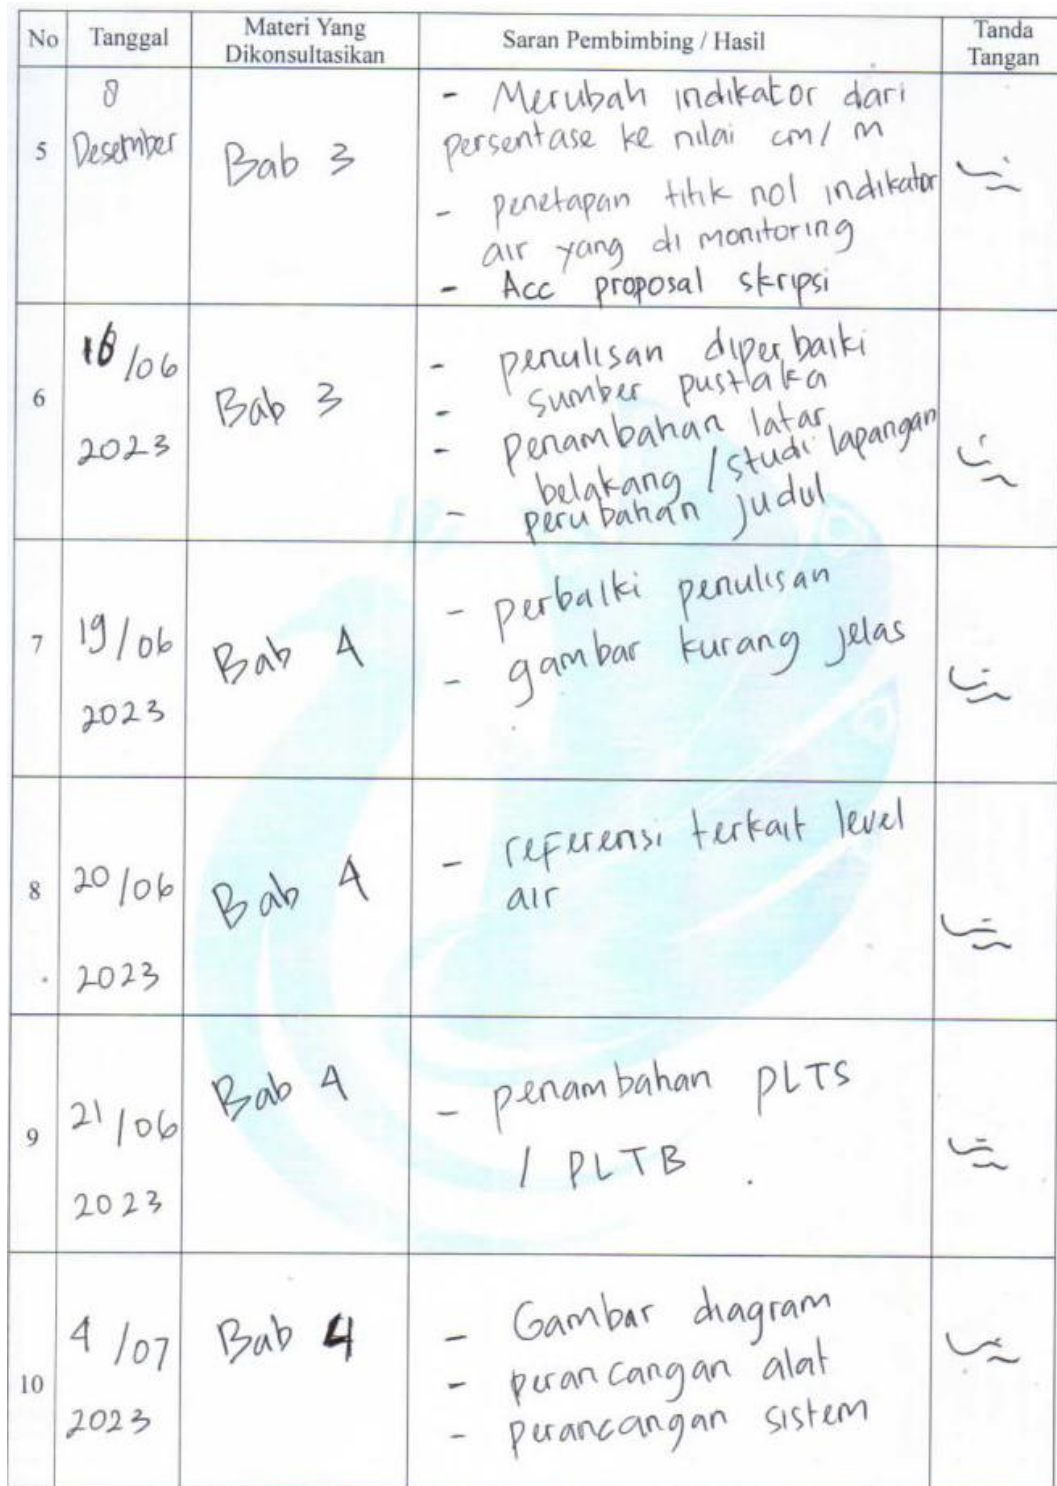 No Tanggal Materi Yang Dikonsultasikan Saran Pembimbing / Hasil Tanda Tangan
8
Desember
5
Bab 3
- Merubah indikator dari
persentase ke nilai cm/ m
- penetapan titik nol indikator
air yang di monitoring
- Acc proposal skripsi
/06
2023
6
Bab 3
- penulisan diperbaiki
- sumber pustaka
- Penambahan latar
belakang / studi lapangan
- perubahan judul
19/06
2023
7
Bab 4
- perbaiki penulisan
- gambar kurang jelas
20/06
2023
8
Bab 4
- referensi terkait level
air
21/06
2023
9
Bab 4
- penambahan PLTS
/ PLTB
4/07
2023
10
Bab 4
- Gambar diagram
- perancangan alat
- perancangan sistem